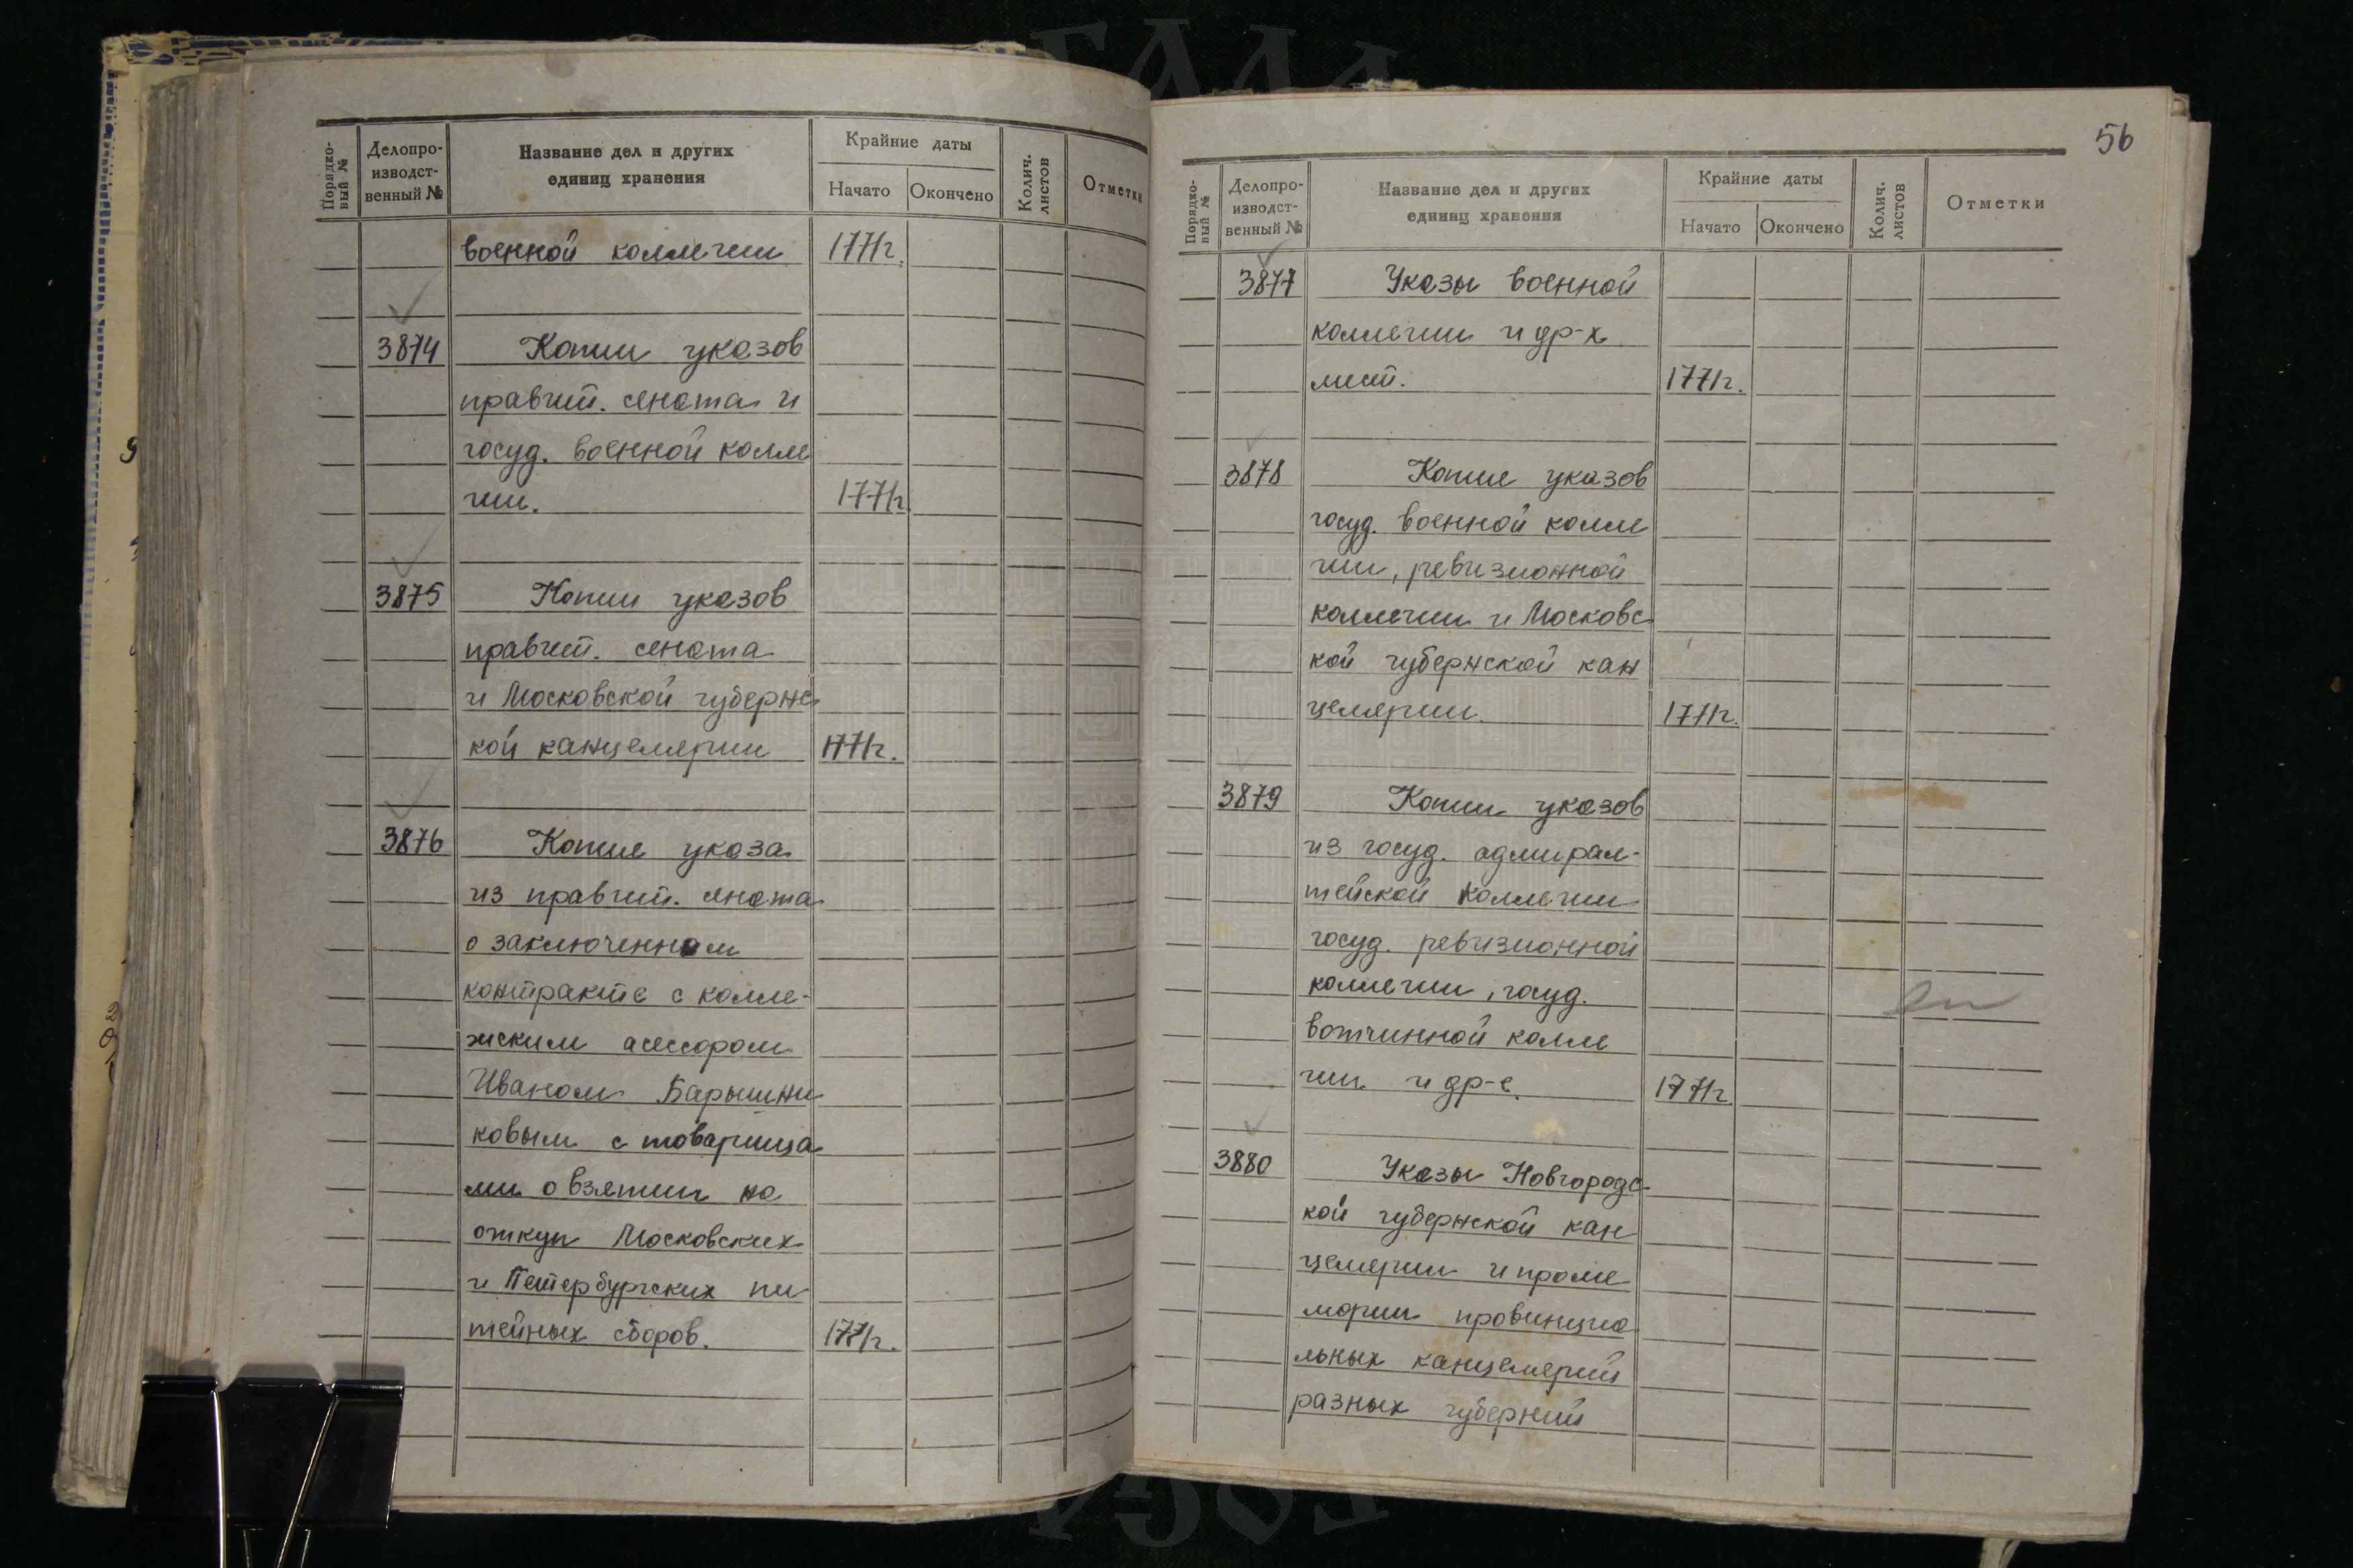 Порядко-
вый №
Делопро-
изводст-
венный №
Название дел и других
единиц хранения
Крайние даты
Начато
Окончено
Колич.
листов
Отметки
военной коллегии 1771г.
3874 Копии указов
правит. сената и
госуд. военной колле
гии. 1771г.
3875 Копии указов
правит. сената
и Московской губернс
кой канцелярии 1771г.
3876 Копие указа
из правит. сената
о заключенном
контракте с колле-
жским асессором
Иваном Барышни
ковым с товарища
ми о взятии на
откуп Московских
и Петербургских пи
тейных сборов. 1771г.
56
Порядко-
вый №
Делопро-
изводст-
венный №
Название дел и других
единиц хранения
Крайние даты
Начато
Окончено
Колич.
листов
Отметки
3877 Указы военной
коллегии и др-х
мест. 1771г.
3878 Копие указов
госуд. военной колле
гии, ревизионной
коллегии и Московс
кой губернской кан
целярии. 1771г.
3879 Копии указов
из госуд. адмирал-
тейской коллегии
госуд. ревизионной
коллегии, госуд.
вотчинной колле
гии и др-е. 1771г.
3880 Указы Новгородс
кой губернской кан
целярии и проме
мории провинциа
льных канцелярий
разных губерний